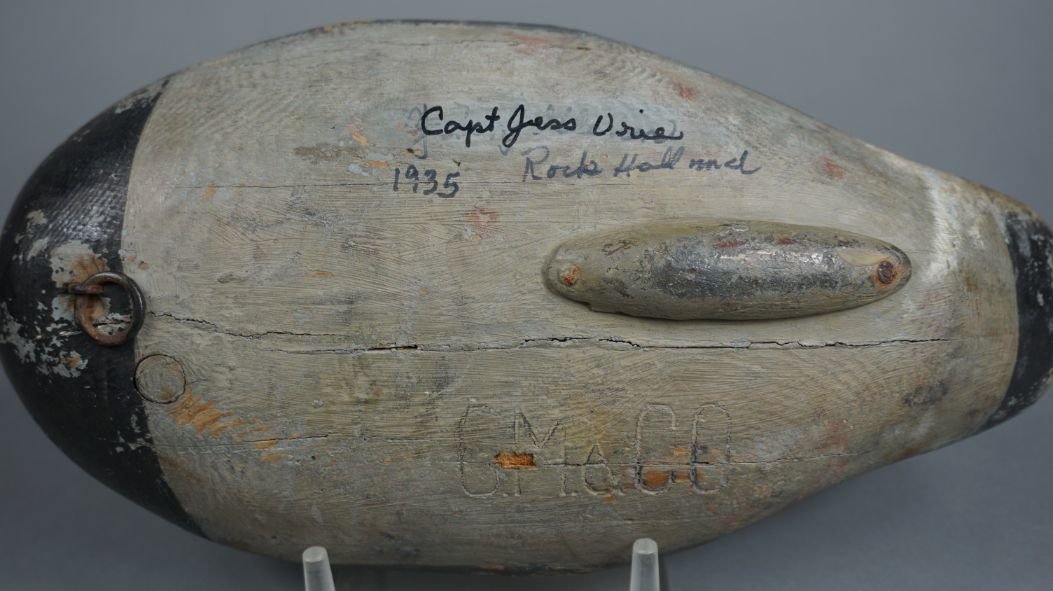 Capt Jess Urie
Rock Hall md
1935
G.M.a.CO